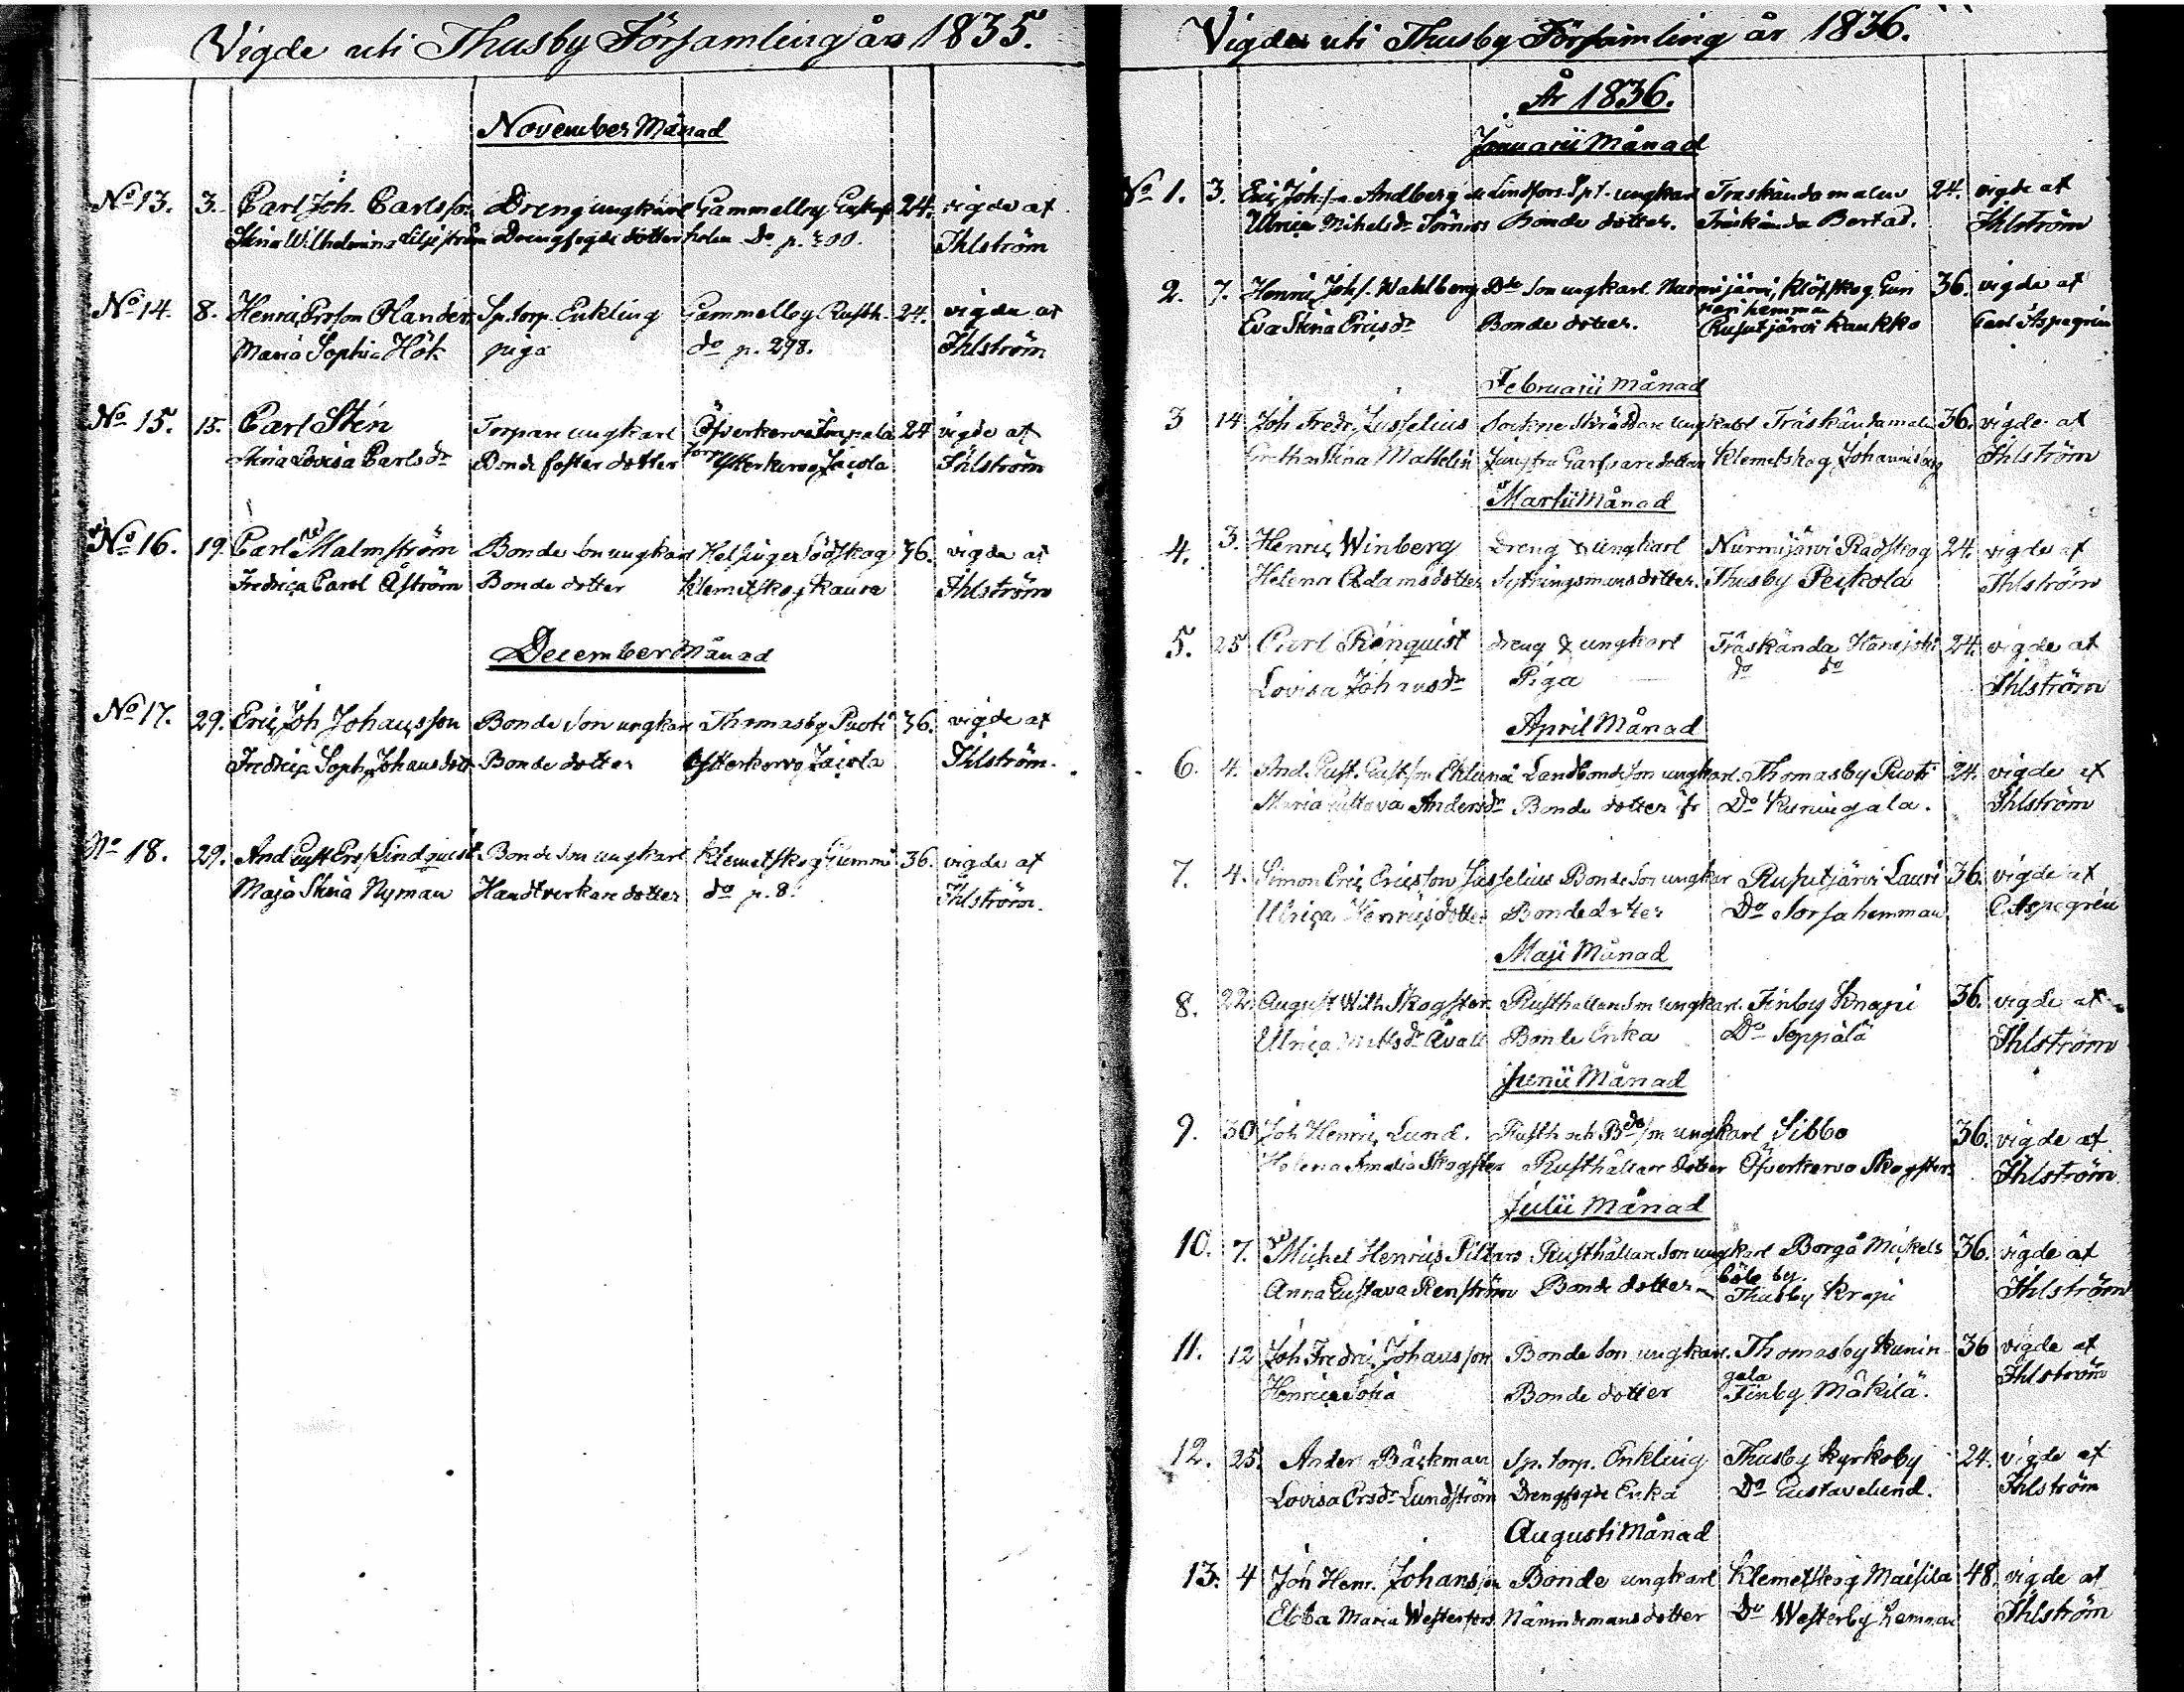 Vigde uti Thusby Församling år 1835.
November Månad
No 13. 3. Carl Joh. Carlsson Dreng ungkarl Gammelby Gustaf 24. vigde af
Stina Wilhelmina Liljeström Drengfogde dotter holm Do p. 300. Ihlström
No 14. 8. Henric Ersson Olander Sp. torp. Enkling Gammelby Rusth. 24. vigde af
Maria Sophia Hök piga do p. 298. Ihlström
No 15. 15. Carl Sten Torpare ungkarl Öfverkervo 24 vigde af
Stina Lovisa Carlsdr Bonde foster dotter Ytterkervo Jacola Ihlström
No 16. 19. Carl Malmström Bonde Son ungkarl Helsinge Södskog 36. vigde af
Fredrica Carol Åström Bonde dotter Klemetskog Kaura Ihlström
December Månad
No 17. 29. Eric Joh Johansson Bonde Son ungkarl Thomasby Puoti 36. vigde af
Fredrica Soph. Johansdott. Bonde dotter Ytterkervo Jacola Ihlström.
No 18. 29. And Gust Ersf Lindquist Bonde Son ungkarl Klemetskog Gummi 36. vigde af
Maja Stina Nyman Handtverkare dotter do p. 8. Ihlström.
Vigde uti Thusby Församling år 1836.
År 1836.
Januarii Månad
No 1. 3. Eric Joh. Andberg Lindfors ungkarl Träskända malm 24. vigde af
Ulrica Mihelsdr Törnros Bonde dotter. Träskända Bertas. Ihlström
2. 7. Henric Johs. Wahlberg Bde Son ungkarl Nurmijärvi, Klöfskog 36. vigde af
hemman
Eva Stina Ericsdr Bonde dotter. Rusutjärvi Kaukko Carl Aspegrén
Februarii Månad
3 14 Joh Fredr. Jusselius Sockne Skräddare ungkarl Träskända malm 36. vigde af
Stina Mattelin Jungfru Garfvare dotter Klemetskog Johannisberg Ihlström
Martii Månad
4. 3. Henric Winberg Dreng & ungkarl Nurmijärvi Rådskog 24. vigde af
Helena Adamsdotter Sytningsmansdotter. Thusby Pejkola Ihlström
5. 25 Carl Rénquist dreng & ungkarl Träskända 24. vigde af
Lovisa Johansdr Piga do do Ihlström
April Månad
6. 4. And. Gust. Gustfson Eklund Landbonde Son ungkarl. Thomasby Puoti 24. vigde af
Maria Gustava Andersdr Bonde dotter fr Do Kuningala. Ihlström
7. 4. Simon Eric Ericsson Jusselius Bonde Son ungkar Rusutjärvi Lauri 36. vigde af
Ulrica Henricsdotter Bonde dotter Do Sorsa hemman C. Aspegrén
Maji Månad
8. 22. August Wilh Skogster Rusthållare Son ungkarl. Finby Knapi 36. vigde af
Ulrica Mattsdr Avall Bonde Enka Do Seppälä Ihlström
Junii Månad
9. 30 Joh Henric Lund. Rusth och Bde son ungkarl Sibbo 36. vigde af
Helena Amalia Skogster Rusthållare dotter Öfverkervo Skogsters Ihlström
Julii Månad
10. 7. Michel Henrics Pillars Rusthållare Son ungkarl Borgå Mickels 36. vigde af
böle by.
Anna Gustava Renström Bonde dotter Thusby Krapi Ihlström
11. 12 Joh Fredric Johansson Bonde Son ungkarl. Thomasby Kunin 36 vigde af
gala
Henrica Sofia Bonde dotter Finby Mäkilä. Ihlström
12. 25. Anders Bäckman Sp. torp. Enkling Thusby Kyrkoby 24. vigde af
Lovisa Ersdr Lundström Drengfogde Enka Do Gustavelund. Ihlström
Augusti Månad
13. 4 Joh Henr. Johansson Bonde ungkarl Klemetskog Maisila 48. vigde af
Ebba Maria Westerfors Nämndemans dotter Do Westerby hemman Ihlström